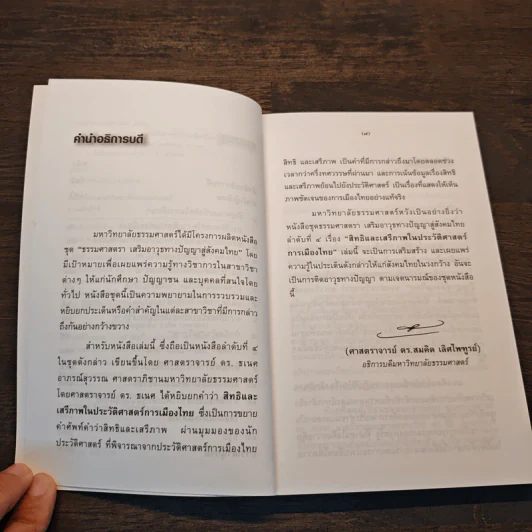 คำนำอธิการบดี
มหาวิทยาลัยธรรมศาสตร์ได้มีโครงการผลิตหนังสือ
ชุด “ธรรมศาสตรา เสริมอาวุธทางปัญญาสู่สังคมไทย” โดย
มีเป้าหมายเพื่อเผยแพร่ความรู้ทางวิชาการในสาขาวิชา
ต่างๆ ให้แก่นักศึกษา ปัญญาชน และบุคคลที่สนใจโดย
ทั่วไป หนังสือชุดนี้เป็นความพยายามในการรวบรวมและ
หยิบยกประเด็นหรือคำสำคัญในแต่ละสาขาวิชาที่มีการกล่าว
ถึงกันอย่างกว้างขวาง
สำหรับหนังสือเล่มนี้ ซึ่งถือเป็นหนังสือลำดับที่ ๔
ในชุดดังกล่าว เขียนขึ้นโดย ศาสตราจารย์ ดร. ธเนศ
อาภรณ์สุวรรณ ศาสตราภิชานมหาวิทยาลัยธรรมศาสตร์
โดยศาสตราจารย์ ดร. ธเนศ ได้หยิบยกคำว่า สิทธิและ
เสรีภาพในประวัติศาสตร์การเมืองไทย ซึ่งเป็นการขยาย
คำศัพท์คำว่าสิทธิและเสรีภาพ ผ่านมุมมองของนัก
ประวัติศาสตร์ ที่พิจารณาจากประวัติศาสตร์การเมืองไทย
สิทธิ และเสรีภาพ เป็นคำที่มีการกล่าวถึงมาโดยตลอดช่วง
เวลากว่าครึ่งทศวรรษที่ผ่านมา และการเน้นข้อมูลเรื่องสิทธิ
และเสรีภาพย้อนไปยังประวัติศาสตร์ เป็นเรื่องที่แสดงให้เห็น
ภาพชัดเจนของการเมืองไทยอย่างแท้จริง
มหาวิทยาลัยธรรมศาสตร์หวังเป็นอย่างยิ่งว่า
หนังสือชุดธรรมศาสตรา เสริมอาวุธทางปัญญาสู่สังคมไทย
ลำดับที่ ๔ เรื่อง “สิทธิและเสรีภาพในประวัติศาสตร์
การเมืองไทย” เล่มนี้ จะเป็นการเสริมสร้าง และเผยแพร่
ความรู้ในประเด็นดังกล่าวให้แก่สังคมไทยในวงกว้าง อันจะ
เป็นการติดอาวุธทางปัญญา ตามเจตนารมณ์ของชุดหนังสือ
นี้
(ศาสตราจารย์ ดร.สมคิด เลิศไพฑูรย์)
อธิการบดีมหาวิทยาลัยธรรมศาสตร์